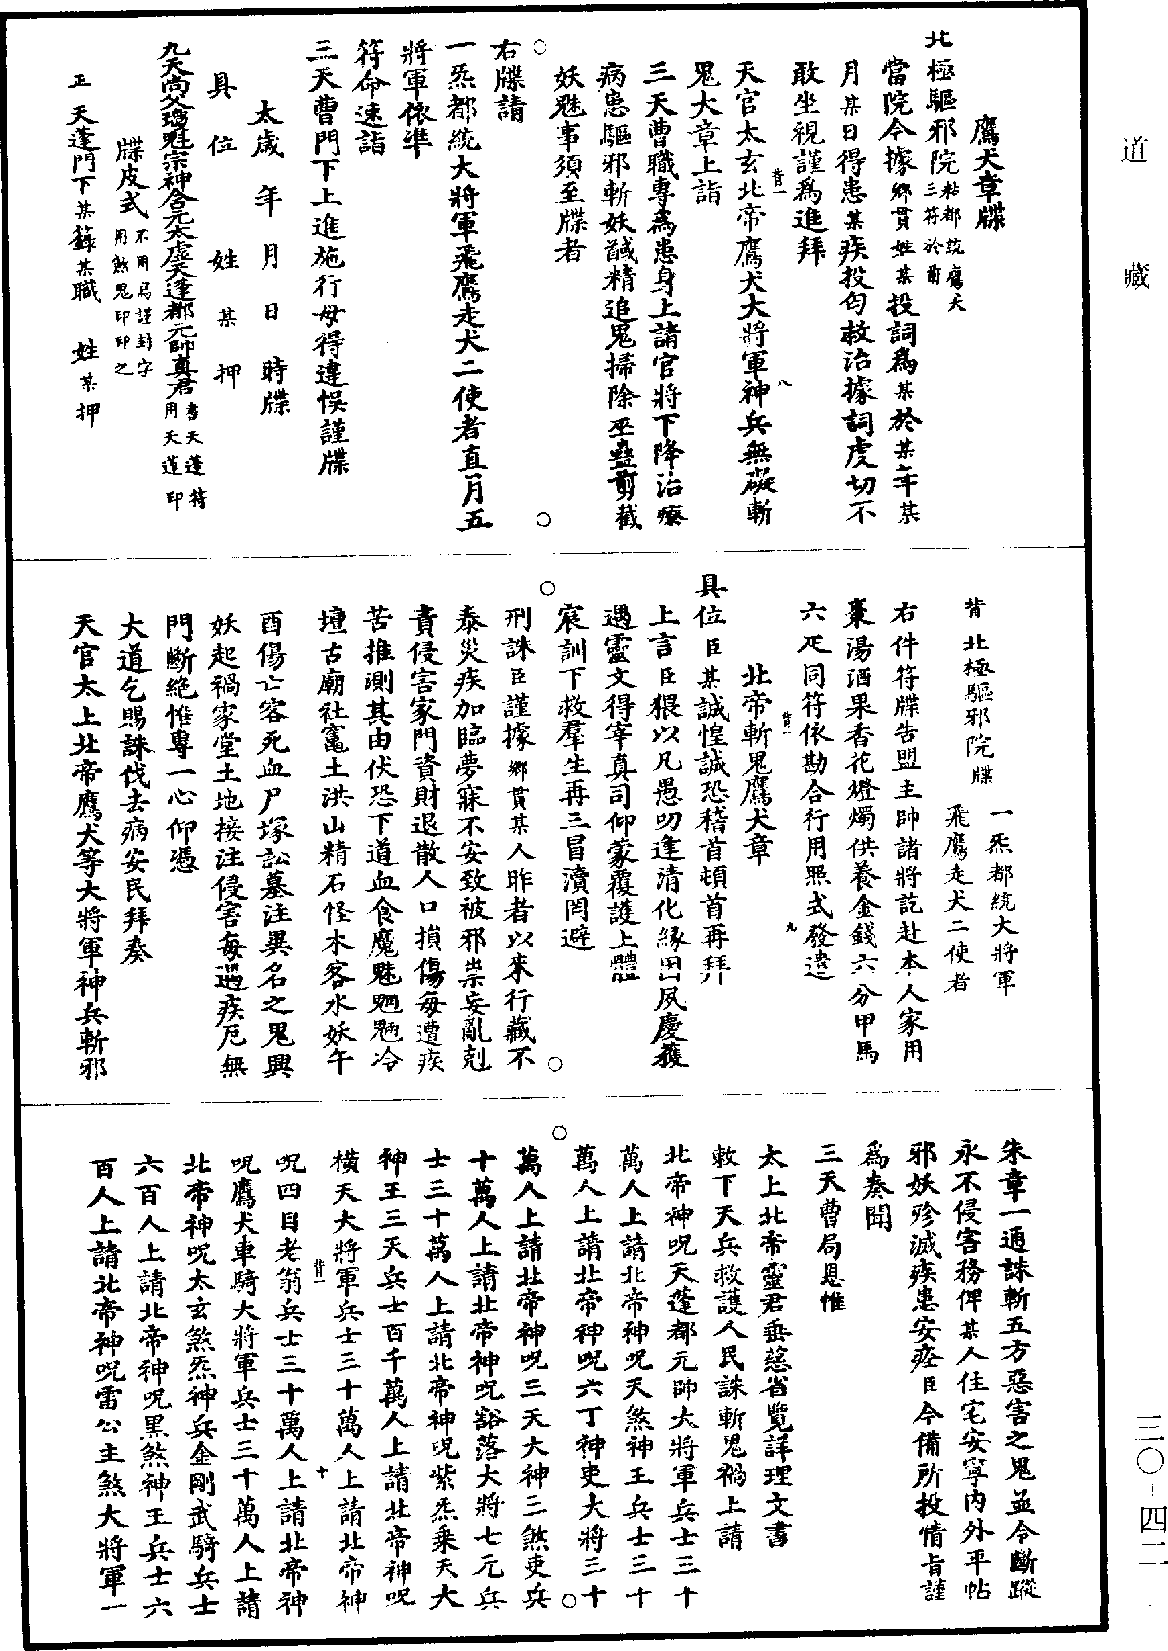 道藏
三〇-四二
鷹犬章牒
北極驅邪院粘都統鷹犬三符於前
當院今據鄉貫姓某投詞爲某於某年某
月某日得患某疾投匄救治據詞虔切不
敢坐視謹爲進拜
天官太玄北帝鷹犬大將軍神兵無礙斬
鬼大章上詣
三天曹職專爲患身上請官將下降治療
病患驅邪斬妖馘精追鬼掃除巫蠱剪截
妖魅事須至牒者
右牒請
一炁都統大將軍飛鷹走犬二使者直月五
將軍依準
符命速詣
三天曹門下上進施行毋得違悞謹牒
太歲 年 月 日 時牒
具 位 姓 某 押
九天尚父 宗神含元太虛天蓬都元帥真君書天蓬符用天蓬印
牒皮式不用爲謹封字用煞鬼印印之
正 天蓬門下某籙某職 姓某押
背 北極驅邪院牒
一炁都統大將軍
飛鷹走犬二使者
右件符牒告盟主帥諸將訖赴本人家用
棗湯酒果香花燈燭供養金錢六分甲馬
六疋同符依勘合行用照式發遣
北帝斬鬼鷹犬章
具位臣某誠惶誠恐稽首頓首再拜
上言臣猥以凡愚叨逢清化緣因夙慶獲
遇靈文得宰真司仰蒙覆護上體
宸訓下救羣生再三冒瀆罔避
刑誅臣謹據鄉貫某人昨者以來行藏不
泰災疾加臨夢寐不安致被邪祟妄亂剋
責侵害家門資財退散人口損傷每遭疾
苦推測其由伏恐下道血食魔魅魍魎冷
壇古廟社竈土洪山精石怪木客水妖午
酉傷亡客死血尸塚訟墓注異名之鬼興
妖起禍家堂土地接注侵害每遇疾厄無
門斷絶惟專一心仰憑
大道乞賜誅伐去病安民拜奏
天官太上北帝鷹犬等大將軍神兵斬邪
朱章一通誅斬五方惡害之鬼並令斷蹤
永不侵害務俾某人住宅安寧内外平帖
邪妖殄滅疾患安痊臣今備所投情旨謹
爲奏聞
三天曹局恩惟
太上北帝靈君垂慈省覽詳理文書
敕下天兵救護人民誅斬鬼禍上請
北帝神呪天蓬都元帥大將軍兵士三十
萬人上請北帝神呪天煞神王兵士三十
萬人上請北帝神呪六丁神吏大將三十
萬人上請北帝神呪三天大神二煞吏兵
十萬人上請北帝神呪豁落大將七元兵
士三十萬人上請北帝神呪紫炁乘天大
神王三天兵士百千萬人上請北帝神呪
橫天大將軍兵士三十萬人上請北帝神
呪四目老翁兵士三十萬人上請北帝神
呪鷹犬車騎大將軍兵士三十萬人上請
北帝神呪太玄煞炁神兵金剛武騎兵士
六百人上請北帝神呪黑煞神王兵士六
百人上請北帝神呪雷公主煞大將軍一